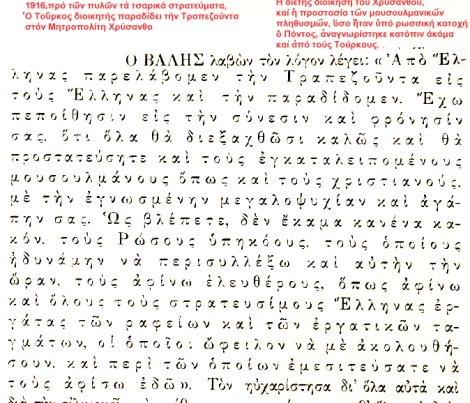 1916,πρό τῶν πυλῶν τά τσαρικά στρατεύματα,
Ὁ Τοῦρκος διοικητής παραδίδει τήν Τραπεζούντα
στόν Μητροπολίτη Χρύσανθο
Ἡ διετής διοίκηση τοῦ Χρυσάνθου,
καί ἡ προστασία τῶν μουσουλμανικῶν
πληθυσμῶν, ὅσο ἦταν ὑπό ρωσσική κατοχή
ὁ Πόντος, ἀναγνωρίστηκε κατόπιν ἀκόμα
καί ἀπό τούς Τούρκους.
Ὁ ΒΑΛΗΣ λαβὼν τὸν λόγον λέγει: «Ἀπὸ Ἕλ-
ληνας παρελάβομεν τὴν Τραπεζοῦντα εἰς
τοὺς Ἕλληνας καὶ τὴν παραδίδομεν. Ἔχω
πεποίθησιν εἰς τὴν σύνεσιν καὶ φρόνησίν
σας, ὅτι ὅλα θὰ διεξαχθῶσι καλῶς καὶ θὰ
προστατεύσητε καὶ τοὺς ἐγκαταλειπομένους
μουσουλμάνους ὅπως καὶ τοὺς χριστιανούς,
μὲ τὴν ἐγνωσμένην μεγαλοψυχίαν καὶ ἀγά-
πην σας. Ὡς βλέπετε, δὲν ἔκαμα κανένα κα-
κόν, τοὺς Ρώσους ὑπηκόους, τοὺς ὁποίους
ἠδυνάμην νὰ περισυλλέξω καὶ αὐτὴν τὴν
ὥραν, τοὺς ἀφίνω ἐλευθέρους, ὅπως ἀφίνω
καὶ ὅλους τοὺς στρατευσίμους Ἕλληνας ἐρ-
γάτας τῶν ραφείων καὶ τῶν ἐργατικῶν ταγ-
μάτων, οἱ ὁποῖοι ὤφειλον νὰ μὲ ἀκολουθή-
σουν, καὶ περὶ τῶν ὁποίων ἐμεσιτεύσατε νὰ
τοὺς ἀφίσω ἐδῶ». Τὸν ηὐχαρίστησα δι' ὅλα αὐτὰ καὶ